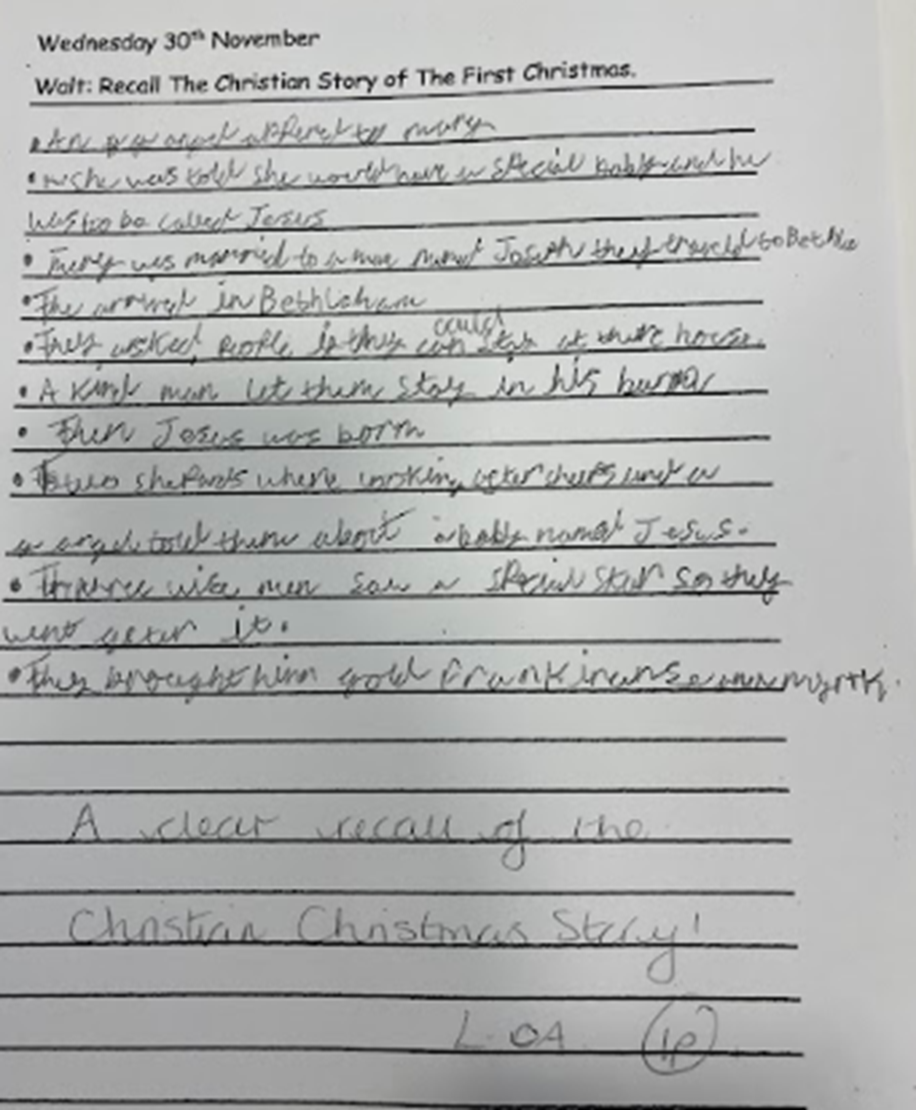 Wednesday 30th November
Walt: Recall The Christian Story of The First Christmas.
• An angel to mary
• she was told she would have a special baby and he
was to be called Jesus
• was married to a man named Joseph they to Bethle
• The in Bethliham
• They asked people if they could stay at there house.
• A kind man let them stay in his
• Then Jesus was born
• two shepards where working after sheeps and a
a angel told them about a baby named Jesus.
• three wise men saw a special star so they
went after it.
• They brought him gold
A clear recall of the
Christian Christmas Story!
L.OA IP